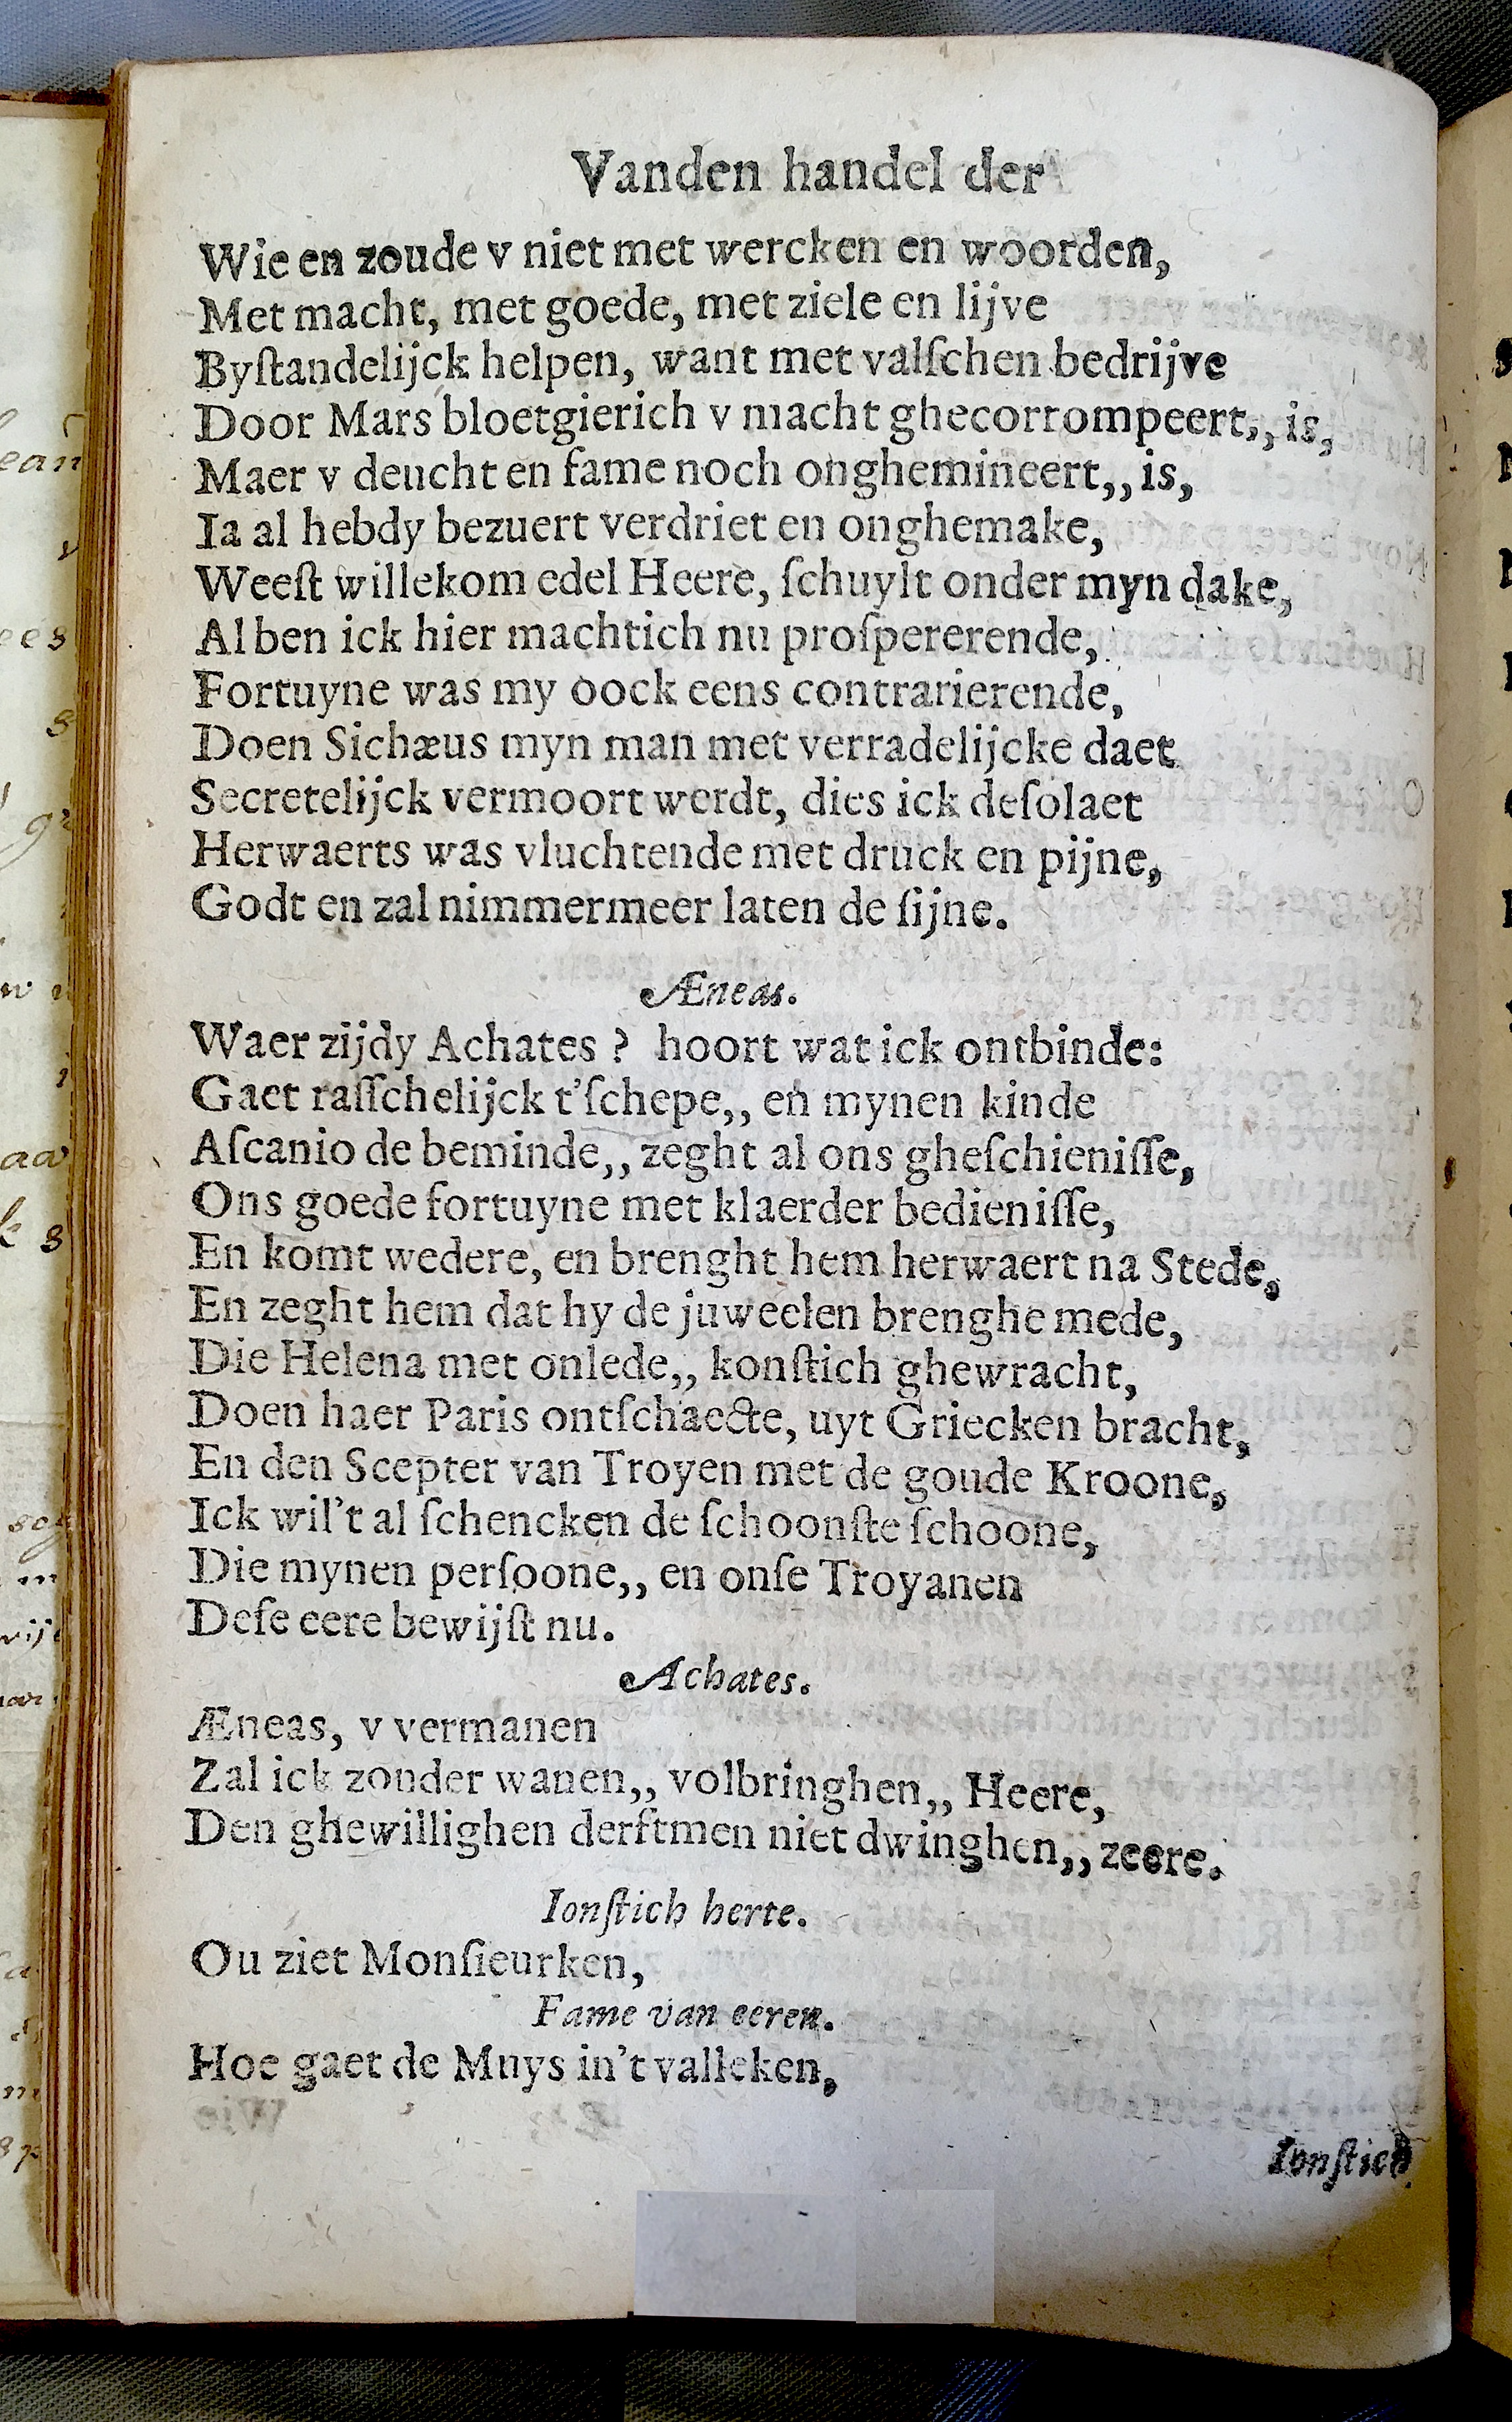 Vanden handel der
Wie en zoude v niet met wercken en woorden,
Met macht, met goede, met ziele en lijve
Byſtandelijck helpen, want met valſchen bedrijve
Door Mars bloetgierich v macht ghecorrompeert,, is,
Maer v deucht en fame noch onghemineert,, is,
Ia al hebdy bezuert verdriet en onghemake,
Weeſt willekom edel Heere, ſchuylt onder myn dake,
Al ben ick hier machtich nu proſpererende,
Fortuyne was my oock eens contrarierende,
Doen Sichæus myn man met verradelijcke daet
Secretelijck vermoort werdt, dies ick deſolaet
Herwaerts was vluchtende met druck en pijne,
Godt en zal nimmermeer laten de ſijne.
Æneas.
Waer zijdy Achates ? hoort wat ick ontbinde:
Gaet raſſchelijck t'ſchepe,, en mynen kinde
Aſcanio de beminde,, zeght al ons gheſchieniſſe,
Ons goede fortuyne met klaerder bedieniſſe,
En komt wedere, en brenght hem herwaert na Stede,
En zeght hem dat hy de juweelen brenghe mede,
Die Helena met onlede,, konſtich ghewracht,
Doen haer Paris ontſchaecte, uyt Griecken bracht,
En den Scepter van Troyen met de goude Kroone,
Ick wil't al ſchencken de ſchoonſte ſchoone,
Die mynen perſoone,, en onſe Troyanen
Deſe eere bewijſt nu.
Achates.
Æneas, v vermanen
Zal ick zonder wanen,, volbringhen,, Heere,
Den ghewillighen derftmen niet dwinghen,, zeere.
Ionſtich herte.
Ou ziet Monſieurken,
Fame van eeren.
Hoe gaet de Muys in't valleken,
Ionſtich